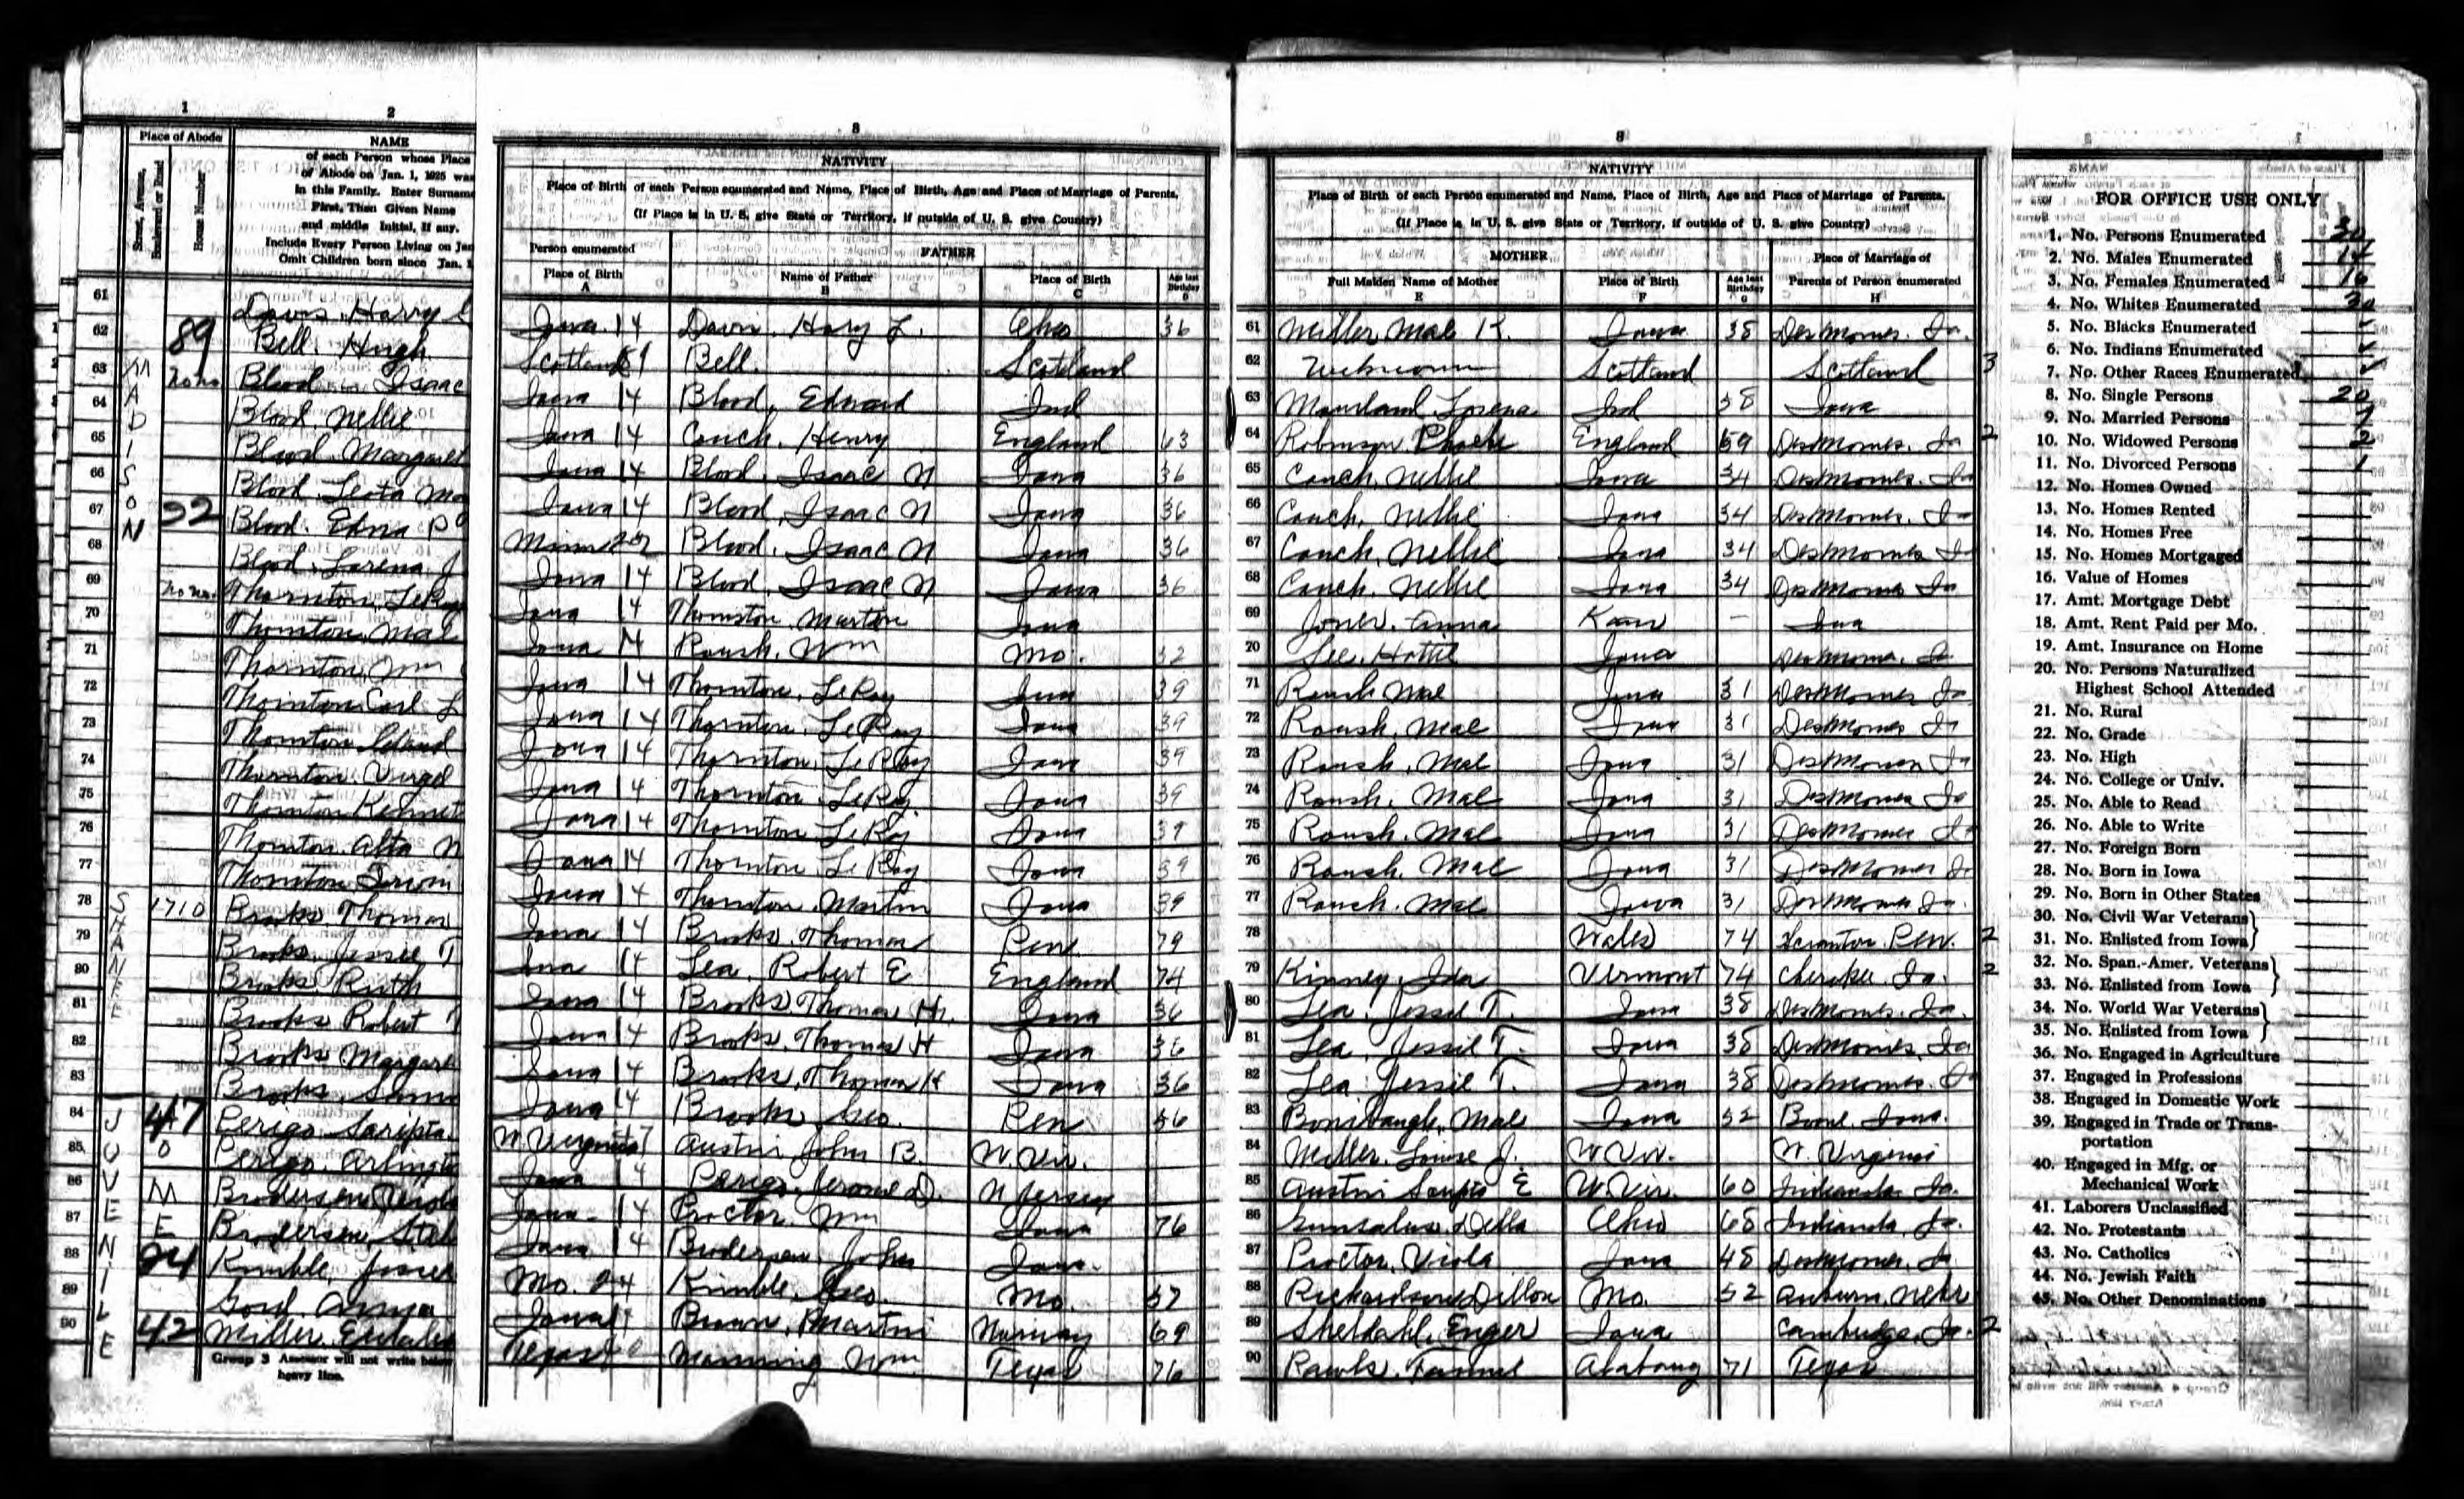 1 2
Place of Abode
Street, Avenue, Boulevard or Road
House Number
NAME
of each Person whose Place
of Abode on Jan. 1, 1925 was
in this Family. Enter Surname
First, Then Given Name
and middle Initial, if any.
Include Every Person Living on Jan
Omit Children born since Jan. 1
61 Davis, Harry L
62 89 Bell. Hugh
63 no no Blood Isaac
64 Blood, Nellie
65 Blood, Margaret
66 Blood, Leota Mae
67 22 Blood, Edna
68 Blood, Lorena J
69 no no. Thornton, LeRoy
70 Thornton, Mae
71 Thornton, Wm
72 Thornton Carl L
73 Thornton
74 Thornton Virgil
75 Thornton Kennet
76 Thornton Alta
77 Thornton
78 1710 Brooks, Thomas
79 Brooks, Jessie T
80 Brooks Ruth
81 Brooks Robert
82 Brooks Margare
83 Brooks,
84 47 Perigo
85 Perigo, Arlingto
86 Brodersen
87 Brodersen
88 24 Kimble,
89 Anna
90 42 Miller,
MADISON
SHAWNEE
JUVENILE
HOME
Group 3 Assessor will not write below
heavy line.
8
NATIVITY
Place of Birth of each Person enumerated and Name, Place of Birth, Age and Place of Marriage of Parents.
(If Place is in U. S. give State or Territory, if outside of U. S. give Country)
Person enumerated
FATHER
Place of Birth A
Name of Father B
Place of Birth C
Age last Birthday D
Iowa 14 Davis, Harry L. Ohio 36
Scotland Bell. Scotland
Iowa 14 Blood, Edward Ind
Iowa 14 Couch, Henry England 63
Iowa 14 Blood, Isaac N Iowa 36
Iowa 14 Blood, Isaac N Iowa 36
Minn Blood, Isaac N Iowa 36
Iowa 14 Blood, Isaac N Iowa 36
Iowa 14 Thornton, Martin Iowa
Iowa 14 Roush, Wm Mo. 52
Iowa 14 Thornton, LeRoy Iowa 39
Iowa 14 Thornton, LeRoy Iowa 39
Iowa 14 Thornton, LeRoy Iowa 39
Iowa 14 Thornton LeRoy. Iowa 39
Iowa 14 Thornton LeRoy Iowa 39
Iowa 14 Thornton LeRoy Iowa 39
Iowa 14 Thornton, Martin Iowa 39
Iowa 14 Brooks, Thomas Pen. 79
Iowa 14 Lea, Robert E England 74
Iowa 14 Brooks, Thomas H. Iowa 36
Iowa 14 Brooks, Thomas H Iowa 36
Iowa 14 Brooks, Thomas H Iowa 36
Iowa 14 Brooks, Geo. Pen 56
W. Virginia Austin, John B. W. Vir.
Iowa 14 Perigo, Jerome D. N Jersey
Iowa 14 Proctor, Wm Iowa 76
Iowa 14 Brodersen, John Iowa
Mo. 24 Kimble, Geo. Mo. 57
Iowa 14 Brown, Martin Norway 69
Texas Manning Wm Texas 76
8
NATIVITY
Place of Birth of each Person enumerated and Name, Place of Birth, Age and Place of Marriage of Parents.
(If Place is in U. S. give State or Territory, if outside of U. S. give Country)
MOTHER
Full Maiden Name of Mother E
Place of Birth F
Age last Birthday G
Place of Marriage of Parents of Person enumerated H
61 Miller, Mae K. Iowa 38 DesMoines. Ia.
62 Unknown Scotland Scotland 3
63 Lorena Ind 38 Iowa
64 Robinson, Phoebe England 59 DesMoines. Ia 2
65 Couch, Nellie Iowa 34 DesMoines. Ia
66 Couch, Nellie Iowa 34 DesMoines. Ia
67 Couch, Nellie Iowa 34 DesMoines Ia
68 Couch, Nellie Iowa 34 DesMoines Ia
69 Jones, Anna Kans — Iowa
70 Lee, Hattie Iowa DesMoines, Ia
71 Roush Mae Iowa 31 DesMoines Ia
72 Roush, Mae Iowa 31 DesMoines Ia
73 Roush, Mae Iowa 31 DesMoines Ia
74 Roush, Mae Iowa 31 DesMoines Ia
75 Roush, Mae Iowa 31 DesMoines Ia
76 Roush, Mae Iowa 31 DesMoines Ia
77 Roush, Mae Iowa 31 DesMoines Ia.
78 Wales 74 Scranton Pen. 2
79 Kinney, Ida Vermont 74 Cherokee Ia. 2
80 Lea, Jessie T. Iowa 38 DesMoines. Ia.
81 Lea, Jessie T. Iowa 38 DesMoines, Ia
82 Lea, Jessie T. Iowa 38 DesMoines. Ia
83 Mae Iowa 52 Boone, Iowa.
84 Miller, Louise J. W Vir. W. Virginia
85 Austin E W. Vir. 60 Indianola Ia.
86 Gunsalus Della Ohio 68 Indianola, Ia.
87 Proctor, Viola Iowa 48 DesMoines. Ia
88 Richardson Mo. 52 Auburn, Nebr
89 Sheldahl, Enger Iowa Cambridge, Ia. 2
90 Rawls, Fannie 71 Texas
FOR OFFICE USE ONLY
1. No. Persons Enumerated 30
2. No. Males Enumerated 14
3. No. Females Enumerated 16
4. No. Whites Enumerated 30
5. No. Blacks Enumerated ✓
6. No. Indians Enumerated ✓
7. No. Other Races Enumerated ✓
8. No. Single Persons 20
9. No. Married Persons 7
10. No. Widowed Persons 2
11. No. Divorced Persons 1
12. No. Homes Owned
13. No. Homes Rented
14. No. Homes Free
15. No. Homes Mortgaged
16. Value of Homes
17. Amt. Mortgage Debt
18. Amt. Rent Paid per Mo.
19. Amt. Insurance on Home
20. No. Persons Naturalized
Highest School Attended
21. No. Rural
22. No. Grade
23. No. High
24. No. College or Univ.
25. No. Able to Read
26. No. Able to Write
27. No. Foreign Born
28. No. Born in Iowa
29. No. Born in Other States
30. No. Civil War Veterans
31. No. Enlisted from Iowa
32. No. Span.-Amer. Veterans
33. No. Enlisted from Iowa
34. No. World War Veterans
35. No. Enlisted from Iowa
36. No. Engaged in Agriculture
37. Engaged in Professions
38. Engaged in Domestic Work
39. Engaged in Trade or Trans-
portation
40. Engaged in Mfg. or
Mechanical Work
41. Laborers Unclassified
42. No. Protestants
43. No. Catholics
44. No. Jewish Faith
45. No. Other Denominations